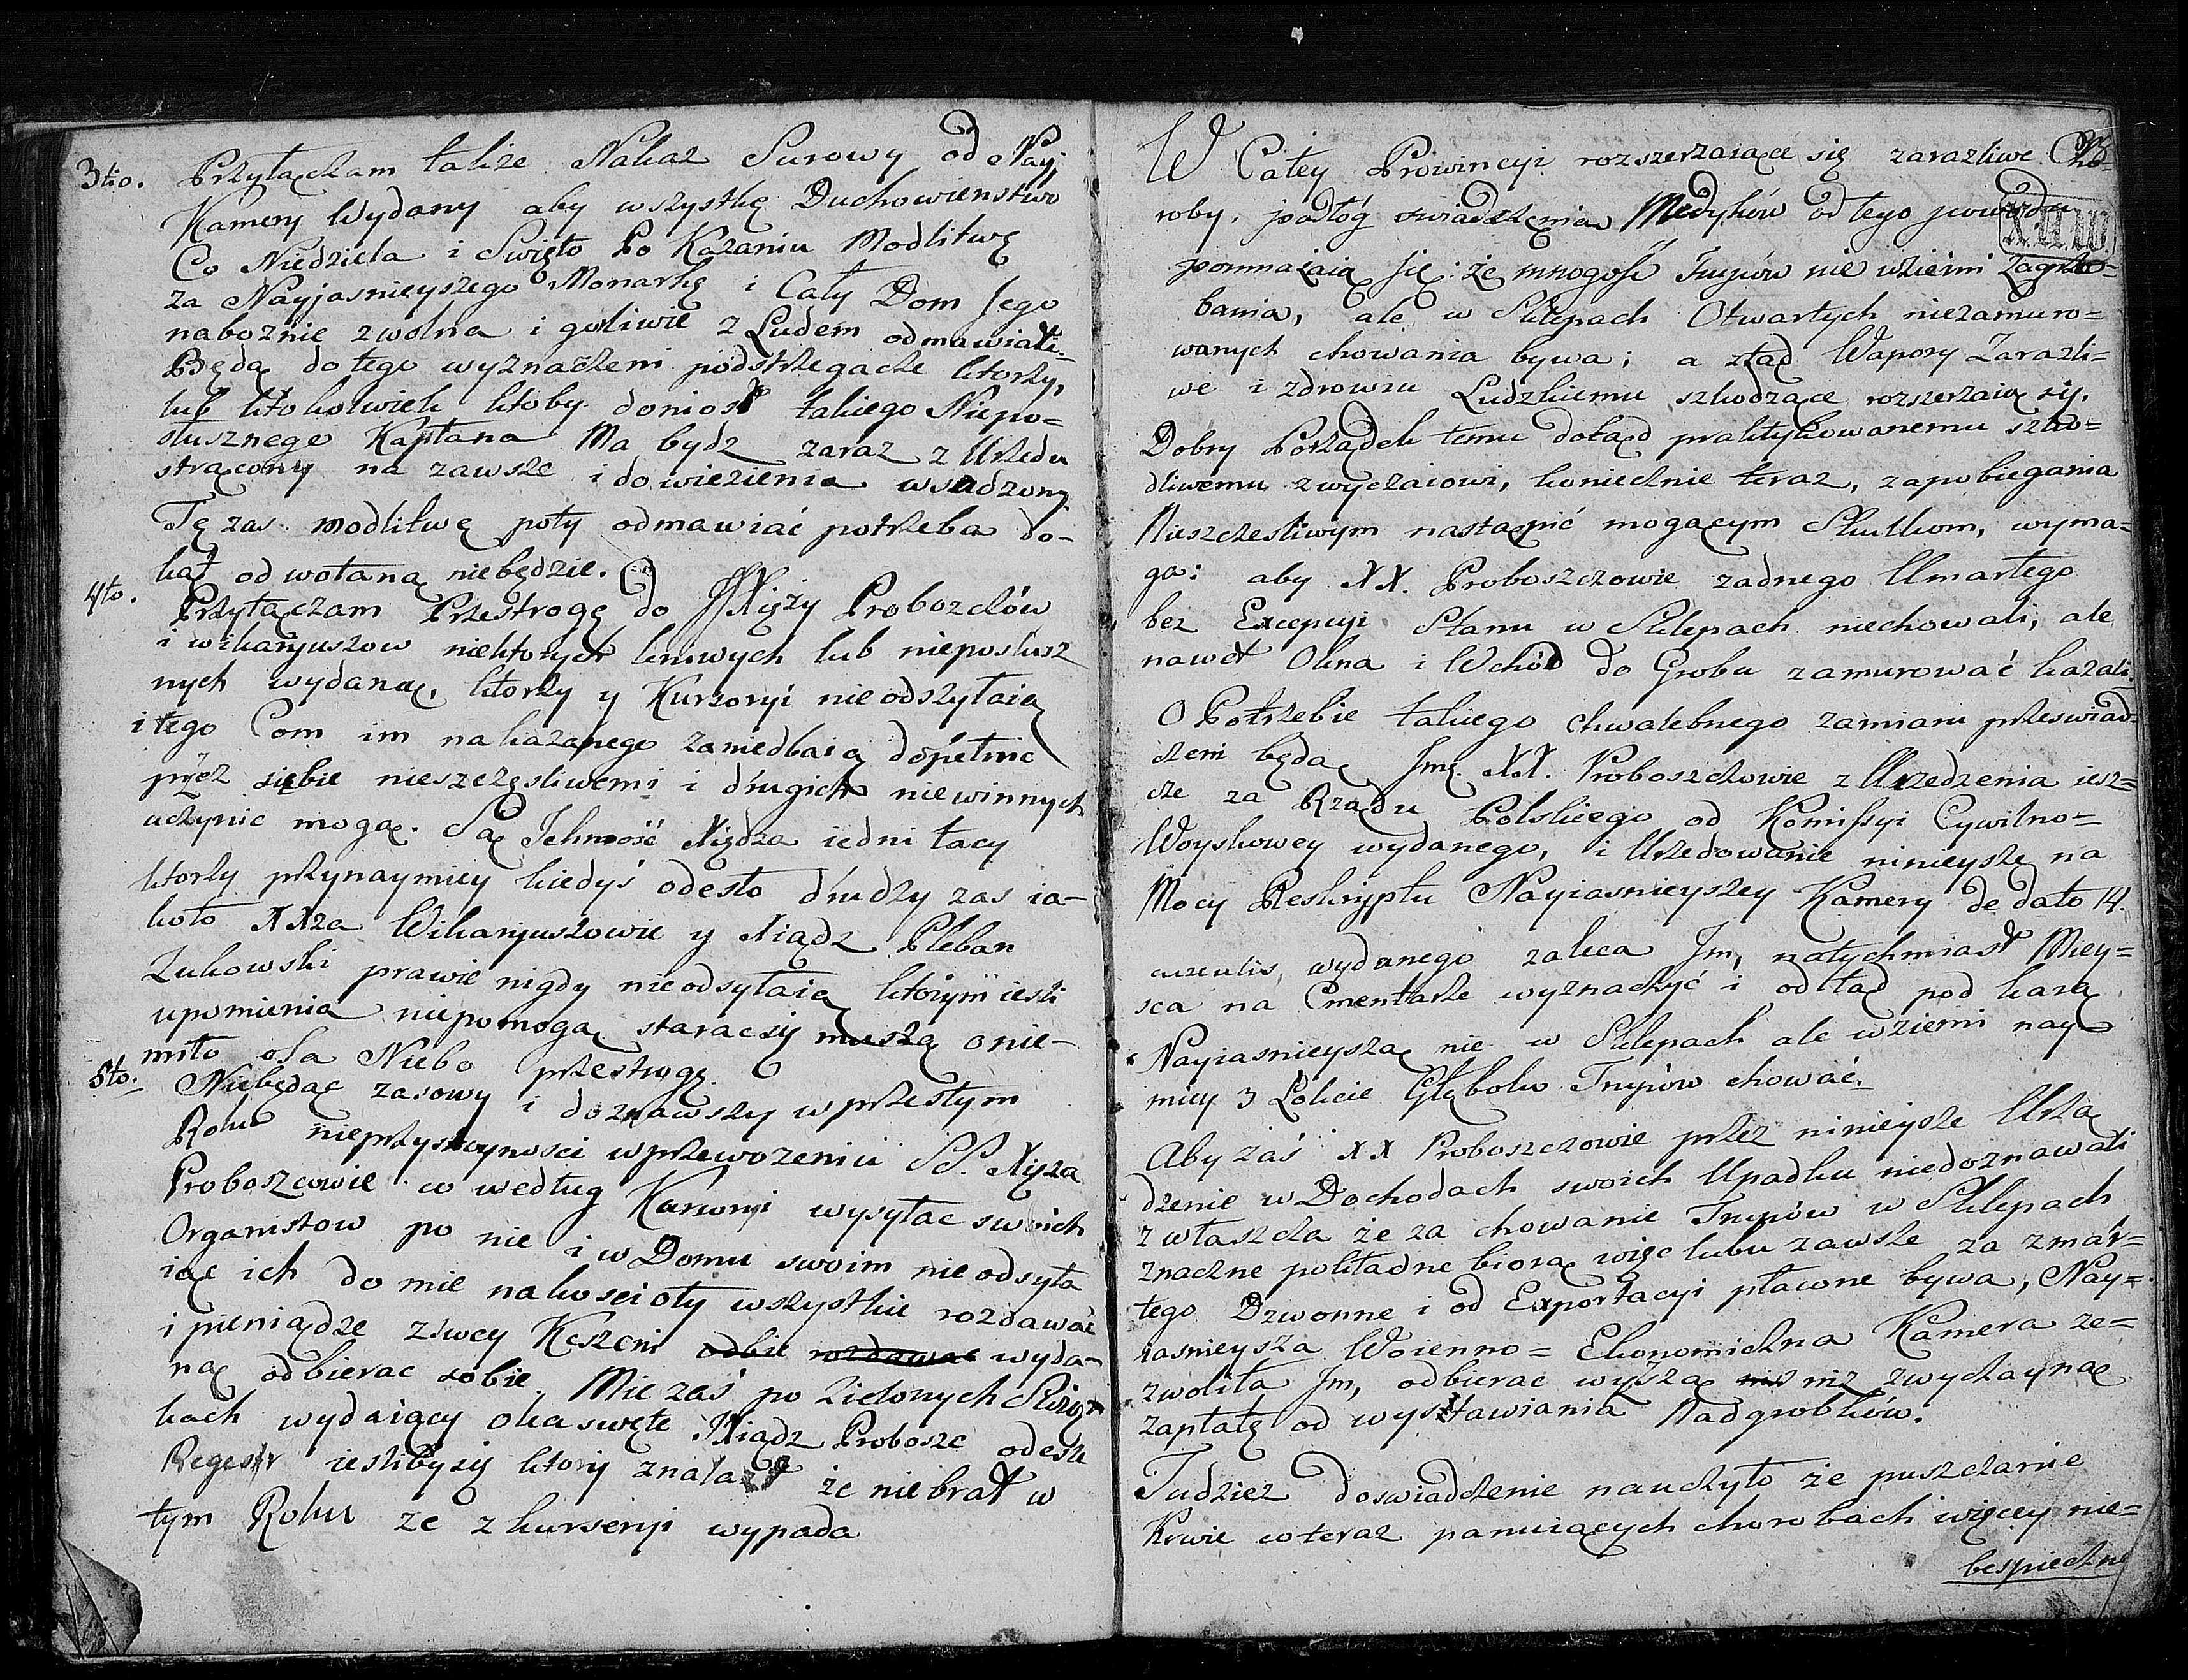 3tio. Przyłączam takze Nakaz Surowy od Nay
Kamery Wydany aby wszystkę Duchowienstwo
Co Niedziela i Swięto Po Kazaniu Modlitwę
za Nayjasnieyszego Monarhę i Cały Dom Jego
naboznie zwolna i gorliwie z Ludem odmawiali.
Będą do tego wyznaczeni podstrzegacze ktorzy,
lub ktokolwiek ktoby doniosł takiego Niepo=
słusznego Kapłana Ma bydz zaraz z Urzędu
strącony na zawsze i do wiezienia wsadzony
Tę zas modlitwę poty odmawiać potrzeba do-
kąt odwołaną niebędzie.
4to. Przyłączam Przestrogę do Xięży Probozczów
i wikaryuszow niektorych leniwych lub nieposlusz
nych wydaną, ktorzy y Kursoryi nie odszyłaią
i tego Com im nakazanego zaniedbaią dopełnic
przez siebie nieszczęsliwemi i drugich niewinnych
uczynic mogą. Są Jchmość Xiędza iedni tacy
ktorzy przynaymiey kiedyś odesło drudzy zas ia-
koto XXza Wikaryuszowie y Xiądz Pleban
Zukowski prawie nigdy nieodsyłaią którym iesli
upomienia niepomogą starac się muszą o nie-
miło osa Niebo przestrogę.
5to. Niebędąc zasowy i doznawszy w przeszłym
Roku nieprzystoynosci w przewozeniu SS. Xięza
Proboszcowie co według Kursoryi wysyłac swoich
Organistow po nie i w Domu swoim nie odsyła
iąc ich do mie nakoscioły wszystkie rozdawać
i pieniądze zswey Keszeni odbie rozdawac wyda-
ną odbierac sobie. Mie zaś po Zielonych Swiąt
kach wydaiący oka swęte Xiądz Probosz odesze
Regestr iesliby się ktory znalazł że nie brał w
tym Roku ze z kursoryi wypada
W Całey Prowincyi rozszerzaiące się zarazliwe Cho-
roby, podłóg swiadczenia Medyków od tego powodu
pomnażaią się: że mnogość Trupów nie wziemi zagrze-
bania, ale w Sklepach Otwartych niezamuro=
wanych chowania bywa; a ztąd Wapory Zarazli=
we i zdrowiu Ludzkiemu szkodzące rozszerzaią się.
Dobry Porządek temu dotąd praktykowanemu szko=
dliwemu zwyczaiowi, koniecznie teraz, zapobiegania
Nieszczesliwym nastąpić mogącym Skutkom, wyma=
ga: aby XX. Proboszczowie zadnego Umarłego
bez Excepcyi Stanu w Sklepach niechowali, ale
nawet Okna i Wchód do Grobu zamurować kazali.
O Potrzebie takiego chwalebnego zamiaru przeswiad=
czeni będąc Jmę. XX. Proboszczowie z Urzedzenia iesz=
cze za Rządu Polskiego od Komissyi Cywilno=
Woyskowey wydanego, i Urzedowanie ninieysze na
Mocy Reskryptu Nayiasnieyszey Kamery de dato 14.
wydanego zaleca Jm, natychmiast Miey=
sca na Cmentarze wyznaczyć i odtąd pod karą
Nayiasnieyszą nie w Sklepach ale w ziemi nay
miey 3 Łokcie Głęboko Trupów chować.
Aby zaś XX Proboszczowie przez ninieysze Urzą
dzenie w Dochodach swoich Upadku niedoznawali
zwłaszcza że za chowanie Trupów w Sklepach
znaczne pokładne biorą więc lubu zawsze za zmar=
łego Dzwonne i od Exportacyi płacone bywa, Nay=
iasnieysza Woienno=Ekonomiczna Kamera ze=
zwoliła Jm, odbierac wyższą niz zwyczayną
zapłatę od wystawiania Nadgrobków.
Tudziez doswiadczenie nauczyło że puszczanie
Krwie w teraz panuiących chorobach więcey nie=
bespieczne